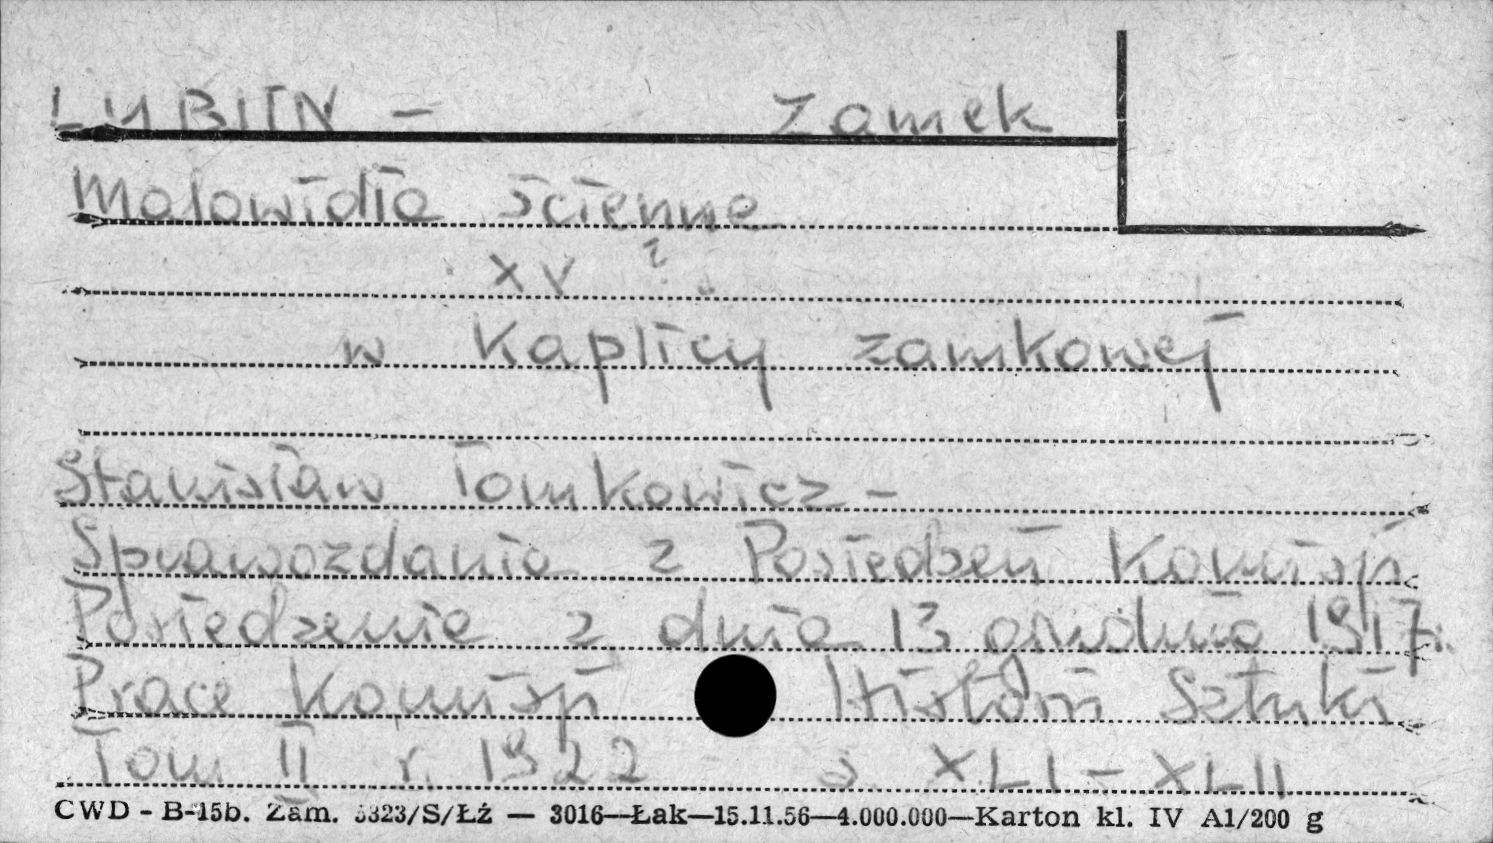 LUBLIN - Zamek
Malowidła ścienne
XV ?
w Kaplicy zamkowej
Stanisław Tomkowicz -
Sprawozdania z Posiedzeń Komisji
Posiedzenie z dnia 13 grudnia 1917 r.
Prace Komisji Historii Sztuki
Tom II r. 1922 s. XLI - XLII
CWD - B-15b. Zam. 5323/S/Łż — 3016—Łak—15.11.56—4.000.000—Karton kl. IV A1/200 g